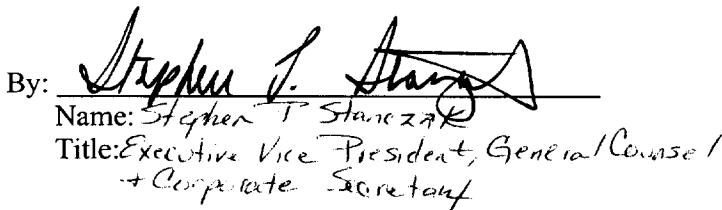 By: Stephen T. Stanczak
Name: Stephen T Stanczak
Title: Executive Vice President, General Counsel
+ Corporate Secretary